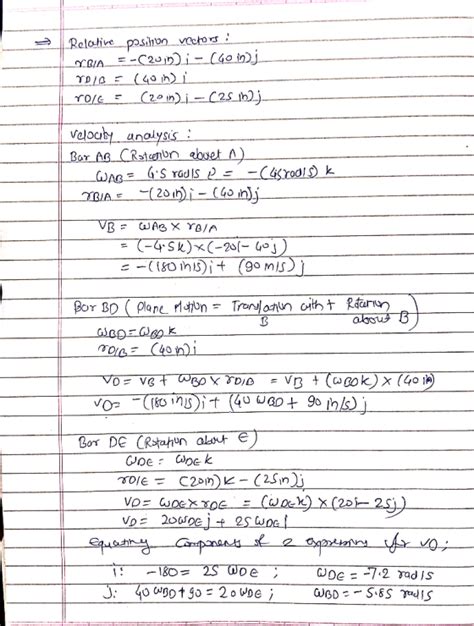 ⇒ Relative position vectors :
rB/A = -(20in)i - (40in)j
rD/B = (40in)i
rD/E = (20in)i - (25in)j
Velocity analysis :
Bar AB (Rotation about A)
ωAB = 4.5 rad/s ↻ = -(45rad/s) k
rB/A = -(20in)i - (40in)j
VB = ωAB × rB/A
= (-4.5k)×(-20i - 40j)
= -(180in/s)i + (90 m/s)j
Bar BD (Plane Motion = Translation with B + Rotation about B)
ωBD = ωBD k
rD/B = (40in)i
VD = VB + ωBD × rD/B = VB + (ωBD k) × (40in)
VD = -(180in/s)i + (40 ωBD + 90 in/s)j
Bar DE (Rotation about E)
ωDE = ωDE k
rD/E = (20in)k - (25in)j
VD = ωDE × rDE = (ωDE k) × (20i - 25j)
VD = 20ωDE j + 25 ωDE i
equating components of 2 expressions for VD;
i: -180 = 25 ωDE ; ωDE = -7.2 rad/s
j: 40 ωBD + 90 = 20 ωDE ; ωBD = -5.85 rad/s